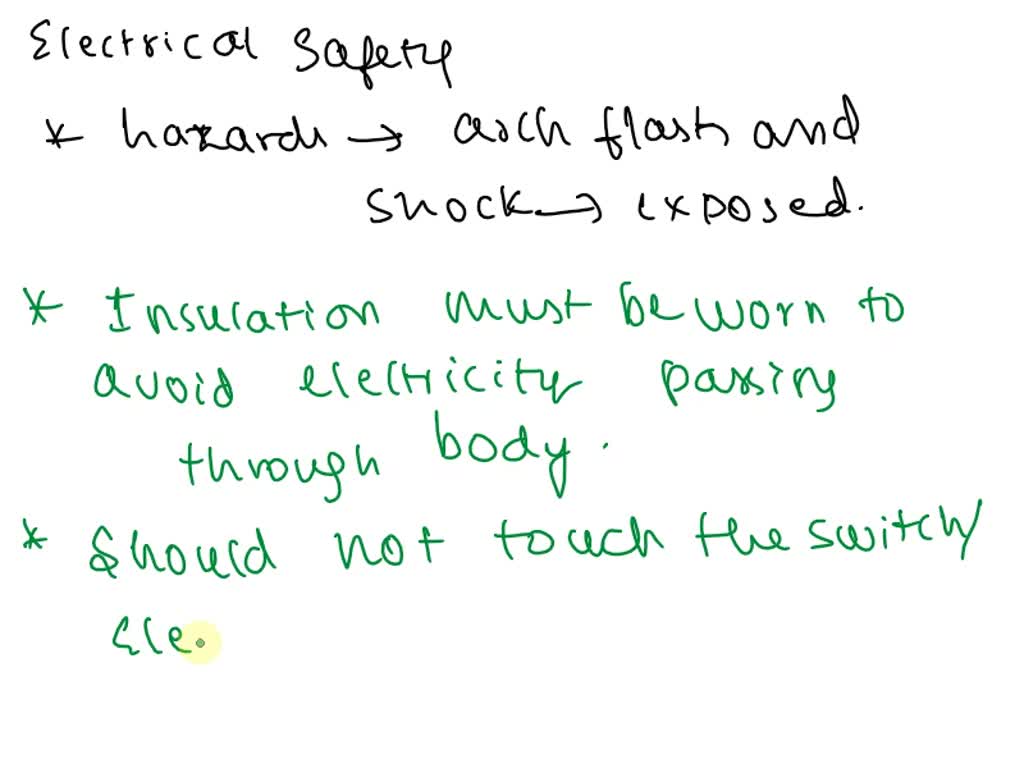 Electrical Safety
* hazards → arch flash and
shock → exposed.
* Insulation must be worn to
avoid electricity passing
through body.
* Should not touch the switch/
Ele